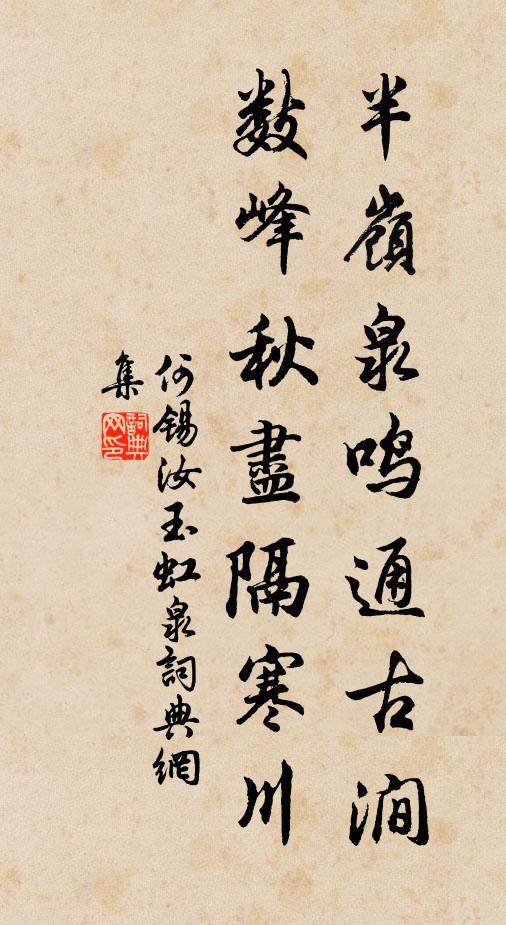 半嶺泉鸣通古澗
数峰秋盡隔寒川
何锡汝玉虹泉詞典網
集
詞典
网印